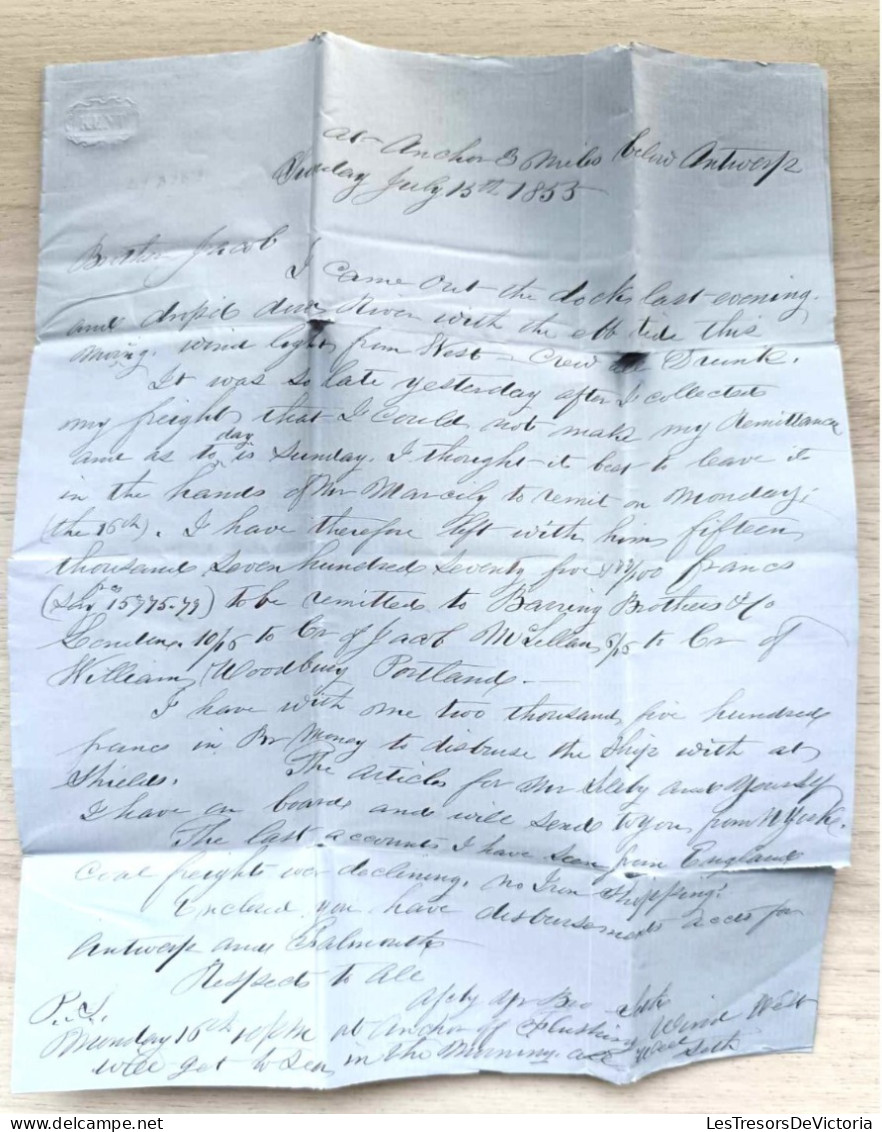 KENT
at Anchor 8 miles below Antwerp
Sunday July 15th 1855
Brother Jacob
I came out the dock last evening.
and drop'd down River with the ebb tide this
morning. wind light from West - Crew all Drunk.
It was so late yesterday after I collected
my freight that I could not make my Remittance
and as to day is Sunday. I thought it best to leave it
in the hands of Mr Marcily to remit on Monday;
(the 16th). I have therefore left with him fifteen
thousand Seven hundred Seventy five 79/100 francs
(Say 15775-79) to be remitted to Barring Brothers & Co
London. 10/15 to Cr of Jacob McLellan 5/15 to Cr of
William Woodbury Portland. —
I have with me two thousand five hundred
francs in Br Money to disburse the Ship with at
Shields. The articles for Mr and Yourself
I have on board and will send to you from N York.
The last accounts I have seen from England
Coal freights wer declining. no Iron Shipping.
Enclosed you have disbursements acc for
Antwerp and Falmouth
Respects to All
Yr Bro Seth
P.S.
Monday 16th 10 PM at Anchor of Flushing Wind West
will get to Sea in the Morning. all well Seth
www.LesTresorsDeVictoria